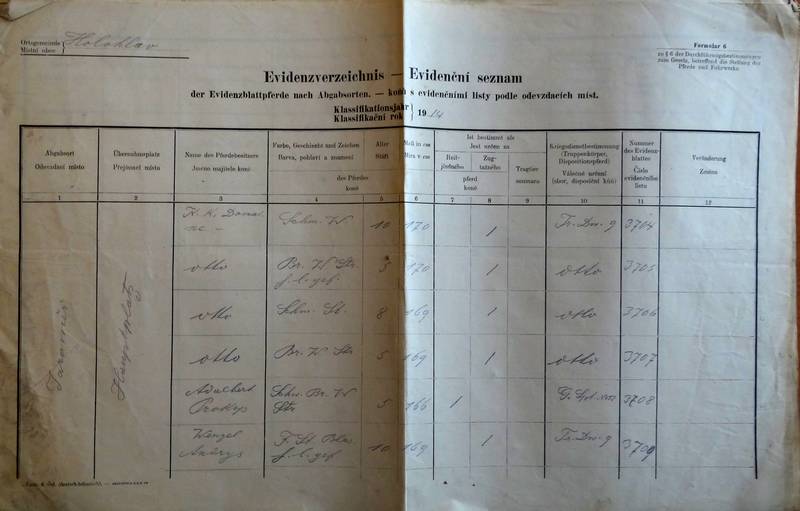 Ortsgemeinde
Místní obec
Holohlav
Formular 6
zu § 6 der Durchführungsbestimmungen
zum Gesetz, betreffend die Stellung der
Pferde und Fuhrwerke
Evidenzverzeichnis — Evidenční seznam
der Evidenzblattpferde nach Abgabsorten. — koní s evidenčními listy podle odevzdacích míst.
Klassifikationsjahr
Klassifikační rok
1914
Abgabsort
Odevzdací místo
Übernahmsplatz
Přejímací místo
Name des Pferdebesitzers
Jméno majitele koně
Farbe, Geschlecht und Zeichen
Barva, pohlaví a znamení
Alter
Stáří
des Pferdes
koně
Maß in cm
Míra v cm
Ist bestimmt als
Jest určen za
Reit-
jízdného
Zug-
tažného
pferd
koně
Tragtier
soumara
Kriegsdienstbestimmung
(Truppenkörper,
Dispositionspferd)
Válečné určení
(sbor, disposiční kůň)
Nummer
des Evidenz-
blattes
Číslo
evidenčního
listu
Veränderung
Změna
1 2 3 4 5 6 7 8 9 10 11 12
Hauptplatz
Schm. W. 10 170 1 Tr. Dw. 9 3704
otto Br. W. Str. 5 170 1 otto 3705
otto Schm. St. 8 169 1 otto 3706
otto Br. W. Str 5 169 1 otto 3707
Adalbert
Prokyš
Schw. Br. W
Str 5 166 1 3708
Wenzel
F. St. 10 169 1 Tr. Dw. 9 3709